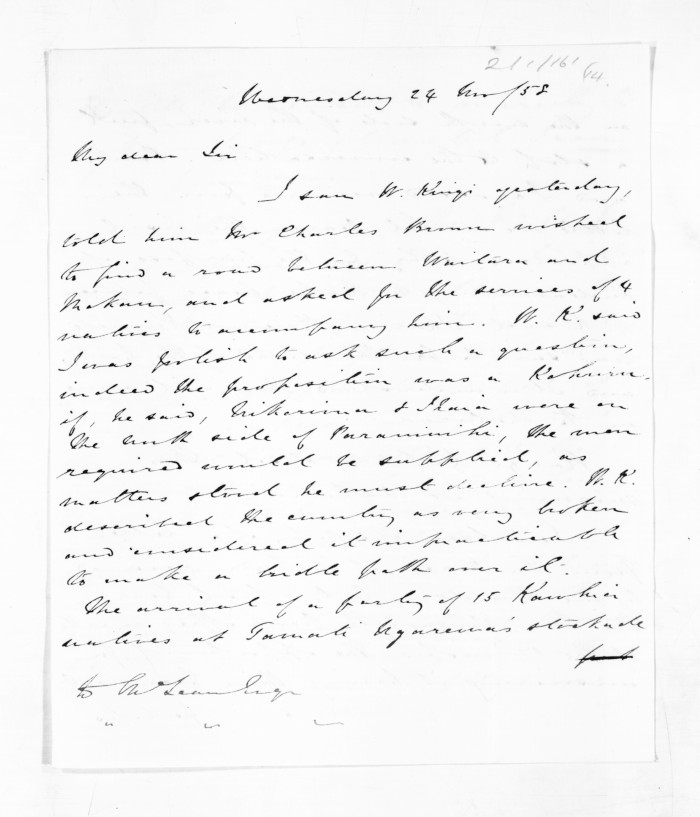 2/1/161
14.
Wednesday 24 Nov/58
My dear Sir
I saw W. Kingi yesterday,
told him Mr Charles Brown wished
to find a road between Waitara and
Mokau, and asked for the services of 4
natives to accompany him. W. K. said
I was foolish to ask such a question,
indeed the proposition was a Kohuru.
if, he said, Nikorima & Ihaia were on
the north side of Paraninihi, the men
required would be supplied, as
matters stood he must decline. W. K.
described the country as very broken
and considered it impracticable
to make a bridle path over it.
The arrival of a party of 15 Kawhia
natives at Tamati Ngarewa's stockade
to McLean Esqr
" " "